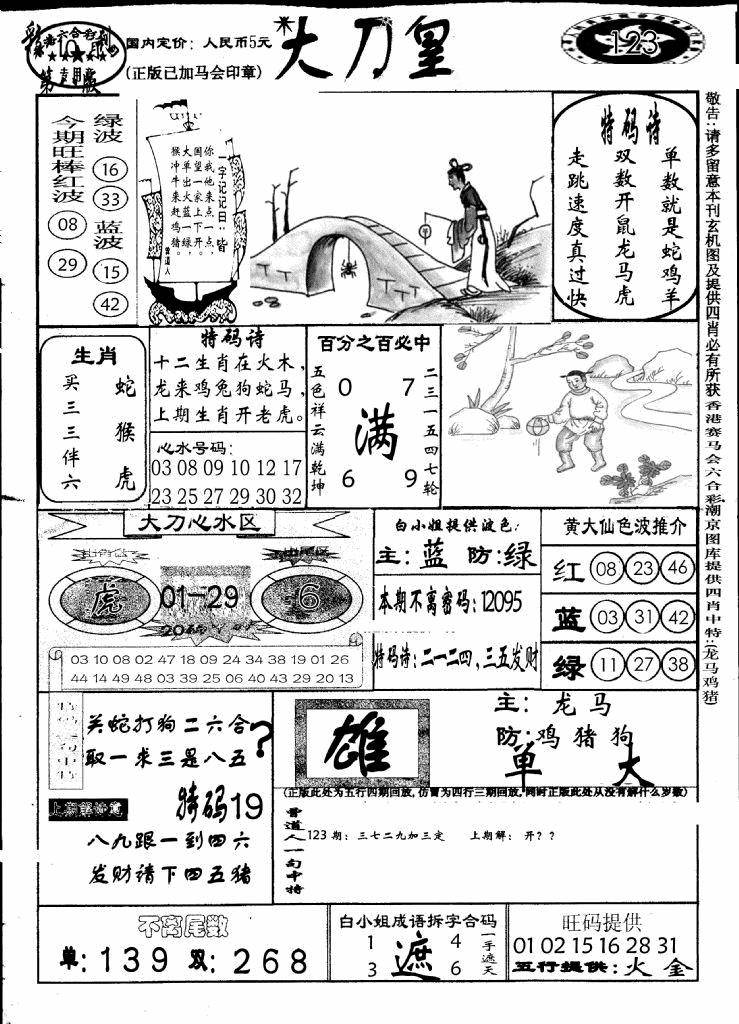 国内定价：人民币5元
(正版已加马会印章)
大刀皇
123
绿波
16
33
蓝波
15
42
今期旺棒红波
08
29
一字记记曰：皆
你我他来点一点。
围望一家上下开。
大单出火蓝一绿，
猴冲牛来赶鸡猪。
曾道人
特码诗
单数就是蛇鸡羊
双数开鼠龙马虎
走跳速度真过快
敬告：请多留意本刊玄机图及提供四肖必有所获
香港赛马会六合彩潮京图库提供四肖中特：(龙马鸡猪)
生肖
买 蛇
三
三 猴
伴
六 虎
特码诗
十二生肖在火木，
龙来鸡兔狗蛇马，
上期生肖开老虎。
心水号码：
03 08 09 10 12 17
23 25 27 29 30 32
百分之百必中
五色祥云满乾坤
0 7
满
6 9
二三一五四七轮
大刀心水区
虎
01—29
6
20码
03 10 08 02 47 18 09 24 34 38 19 01 26
44 14 49 48 03 39 25 04 11 43 29 20 13
白小姐提供波色：
主：蓝 防：绿
本期不离密码：12095
特码诗：二一二四，三五发财
黄大仙色波推介
红 08 23 46
蓝 03 31 42
绿 11 27 38
关蛇打狗二六合
取一求三是八五
?
特码19
八九跟一到四六
发财请下四五猪
雄
主：龙马
防：鸡猪狗
单 大
(正版此处为五行四期回放，仿冒为四行三期回放，同时正版此处从没有解什么岁数)
曾道人一句中特
123期：三七二九加三定 上期解：开？？
不离尾数
单：139 双：268
白小姐成语拆字合码
1 4
遮
3 6
一手遮天
旺码提供
01 02 15 16 28 31
五行提供：火 金